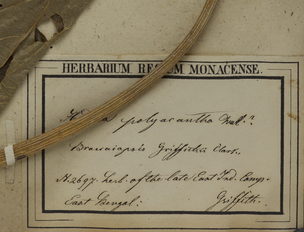 HERBARIUM REGIUM MONACENSE.
a polyacantha Wall.?
Brassaiopsis Griffithii Clarke.
N. 2697. herb. of the late East Ind. Comp.
East Bengal: Griffith.